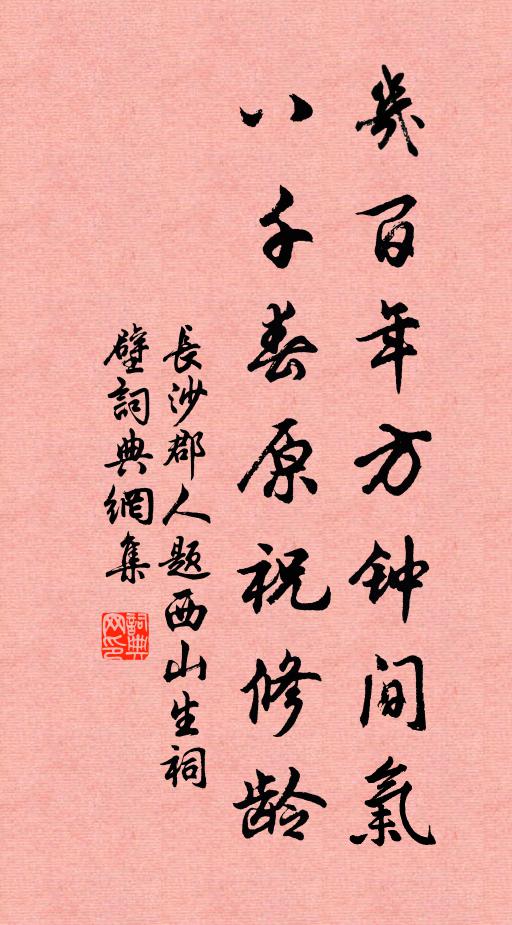 幾百年方钟间氣
八千春原祝修龄
長沙郡人题西山生祠
壁詞典網集
詞典网印